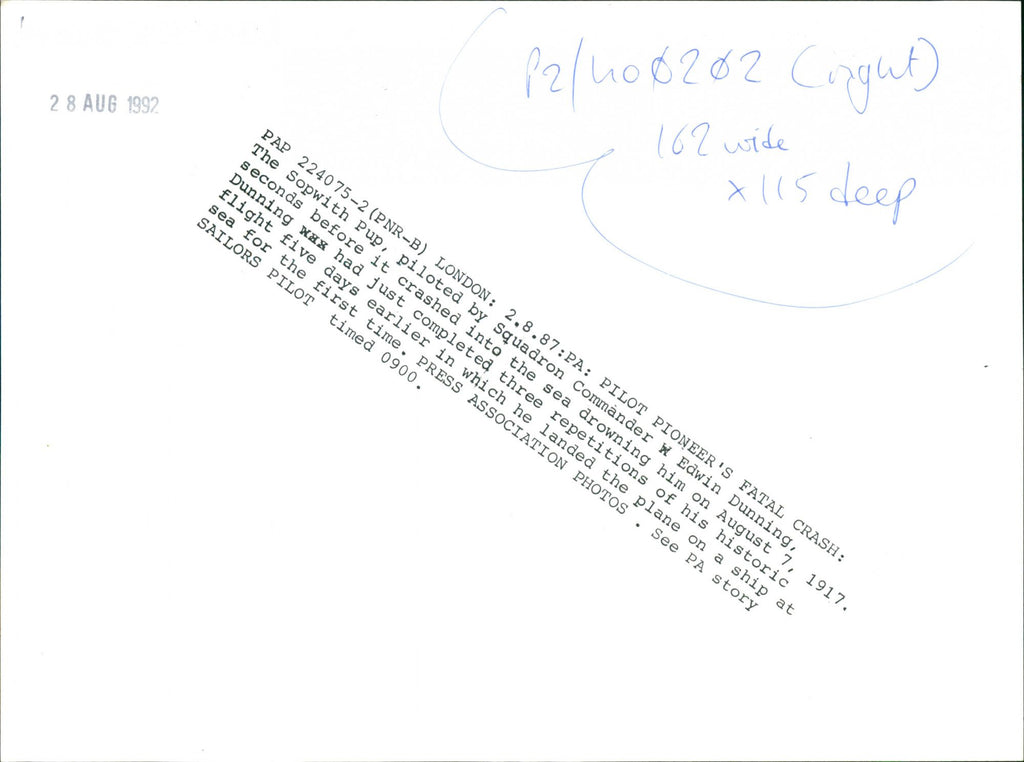 28 AUG 1992
P2/hoØ2Ø2 (right)
162 wide
x 115 deep
PAP 224075-2(PNR-B) LONDON: 2.8.87:PA: PILOT PIONEER'S FATAL CRASH:
The Sopwith Pup, piloted by Squadron Commander W Edwin Dunning,
seconds before it crashed into the sea drowning him on August 7, 1917.
Dunning wax had just completed three repetitions of his historic
flight five days earlier in which he landed the plane on a ship at
sea for the first time. PRESS ASSOCIATION PHOTOS . See PA story
SAILORS PILOT timed 0900.